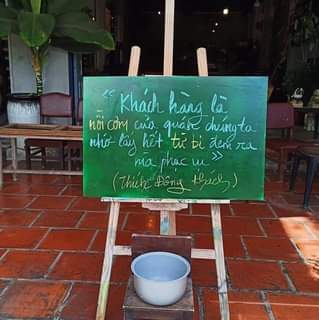 “ Khách hàng là
nồi cơm của quán chúng ta
nhớ lấy hết từ bi đem ra
mà phục vụ »
(Thích Đồng Khách)